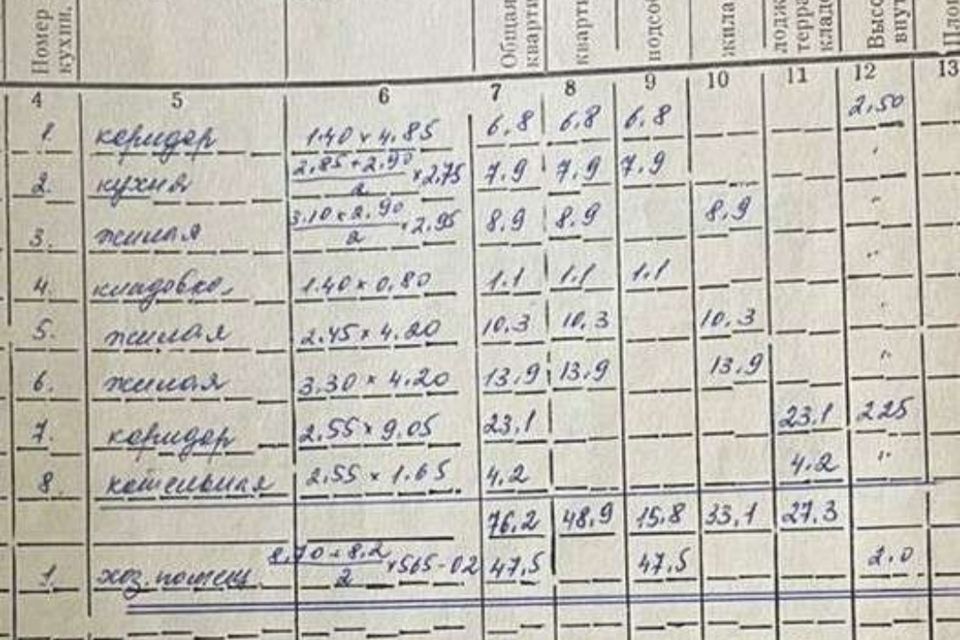 Номер кухни.
Общая кварти
кварти
подсоб
жила
лодж терра кладо
Высо вну
Площ
4 5 6 7 8 9 10 11 12 13
1. коридор 1.40 x 4.85 6,8 6,8 6,8 2,50
2. кухня 2.85+2.90 / 2 x 2,75 7,9 7,9 7,9 "
3. жилая 3.10 x 2.90 / 2 x 2,95 8,9 8,9 8,9 "
4. кладовка. 1.40 x 0,80 1.1 1.1 1.1 "
5. жилая 2.45 x 4.20 10,3 10,3 10,3 "
6. жилая 3.30 x 4.20 13,9 13,9 13,9 "
7. коридор 2.55 x 9.05 23,1 23,1 225
8. котельная 2.55 x 1.65 4.2 4.2 "
76,2 48,9 15,8 33,1 27,3
1. хоз. помещ. 8,70+8,2 / 2 x 565-02 47,5 47,5 2.0